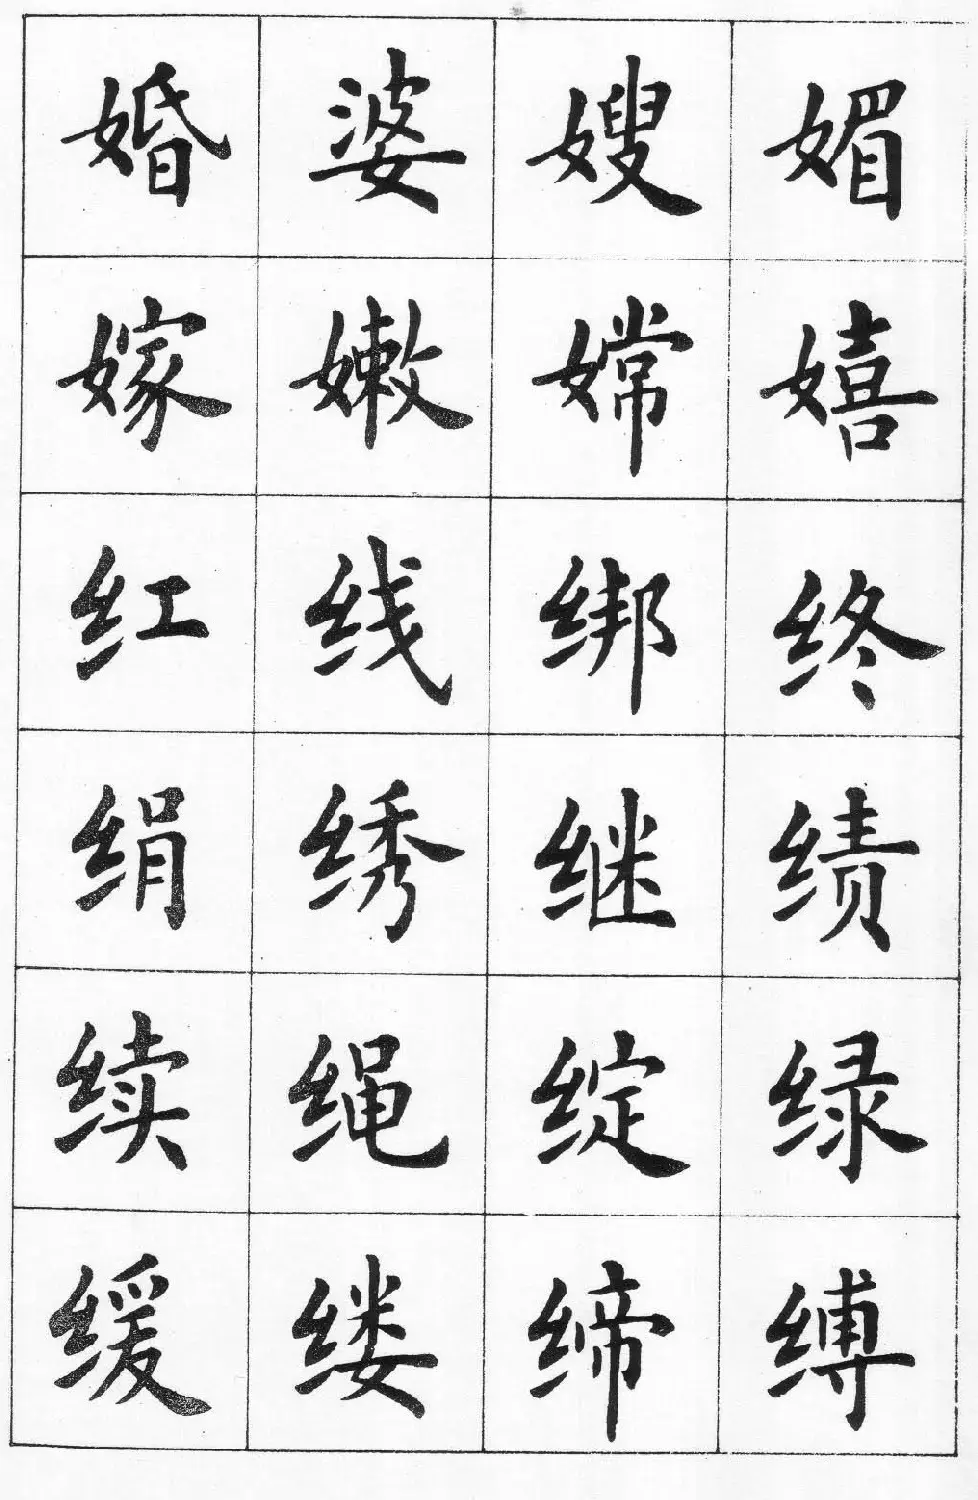 婚婆嫂媚
嫁嫩嫦嬉
红线绑终
绢绣继绩
续绳绽绿
缓缕缔缚